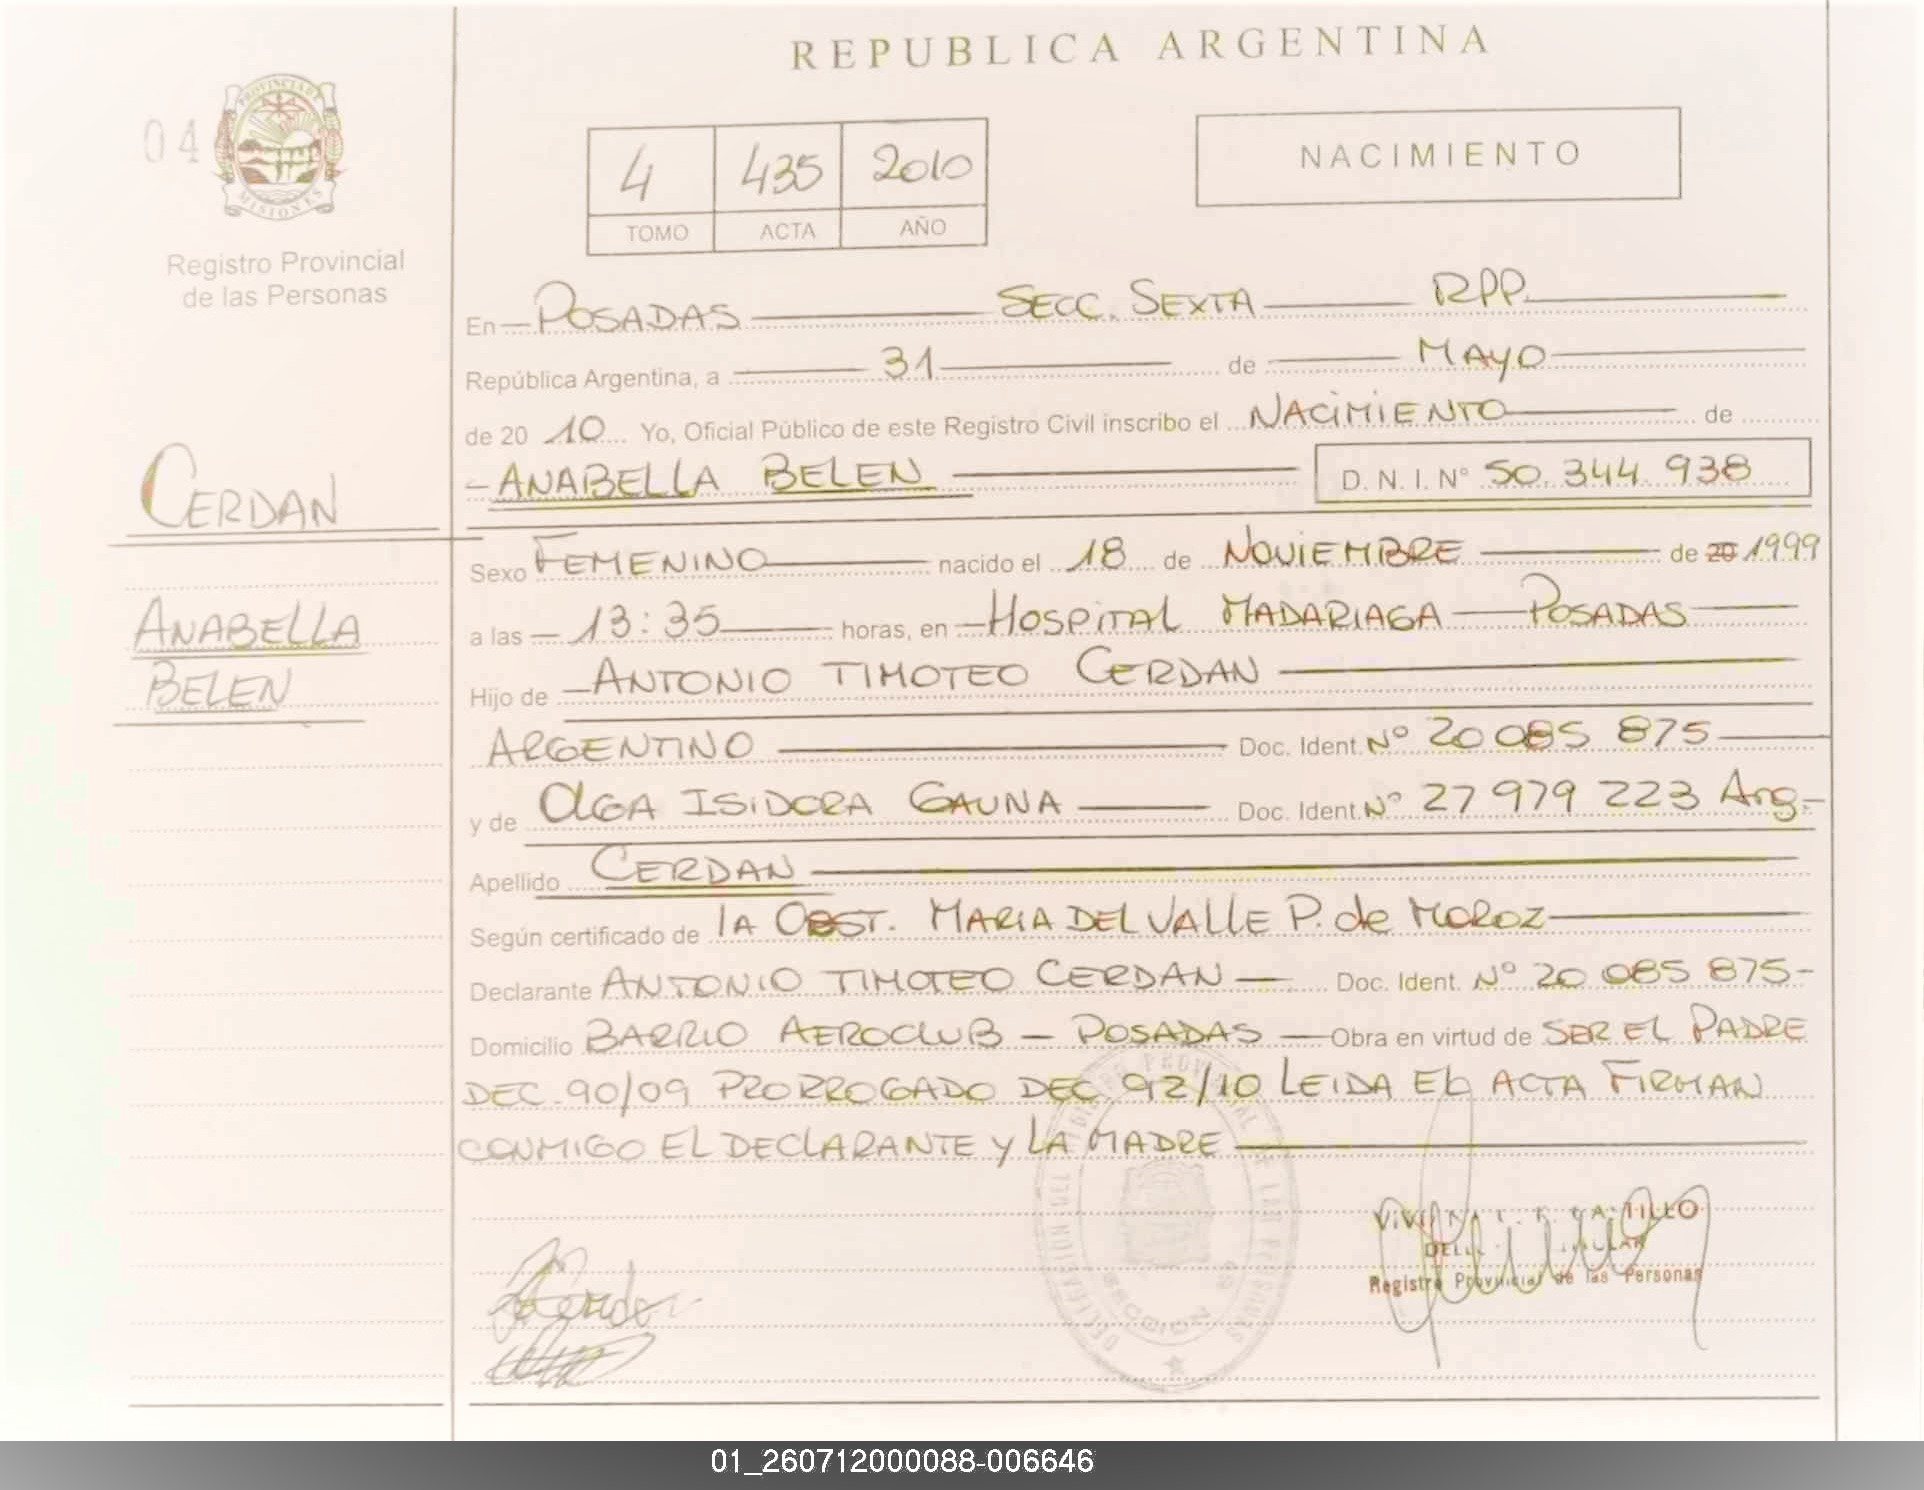 REPUBLICA ARGENTINA
04
PROVINCIA DE
MISIONES
Registro Provincial
de las Personas
4 435 2010
TOMO ACTA AÑO
NACIMIENTO
CERDAN
ANABELLA
BELEN
En POSADAS SECC. SEXTA RPP
República Argentina, a 31 de MAYO
de 20 10 Yo, Oficial Público de este Registro Civil inscribo el NACIMIENTO de
ANABELLA BELEN D. N. I. Nº 50.344.938
Sexo FEMENINO nacido el 18 de NOVIEMBRE de 20 1999
a las 13:35 horas, en HOSPITAL MADARIAGA — POSADAS
Hijo de ANTONIO TIMOTEO CERDAN
ARGENTINO Doc. Ident. Nº 20 085 875
y de OLGA ISIDORA GAUNA Doc. Ident. Nº 27 979 223 Arg.
Apellido CERDAN
Según certificado de LA OBST. MARIA DEL VALLE P. de MOROZ
Declarante ANTONIO TIMOTEO CERDAN Doc. Ident. Nº 20 085 875
Domicilio BARRIO AEROCLUB — POSADAS Obra en virtud de SER EL PADRE
DEC. 90/09 PRORROGADO DEC. 92/10 LEIDA EL ACTA FIRMAN
CONMIGO EL DECLARANTE Y LA MADRE
DELEGACION DEL REGISTRO PROVINCIAL DE LAS PERSONAS
SECCION 6ª
Registro Provincial de las Personas
01_260712000088-006646